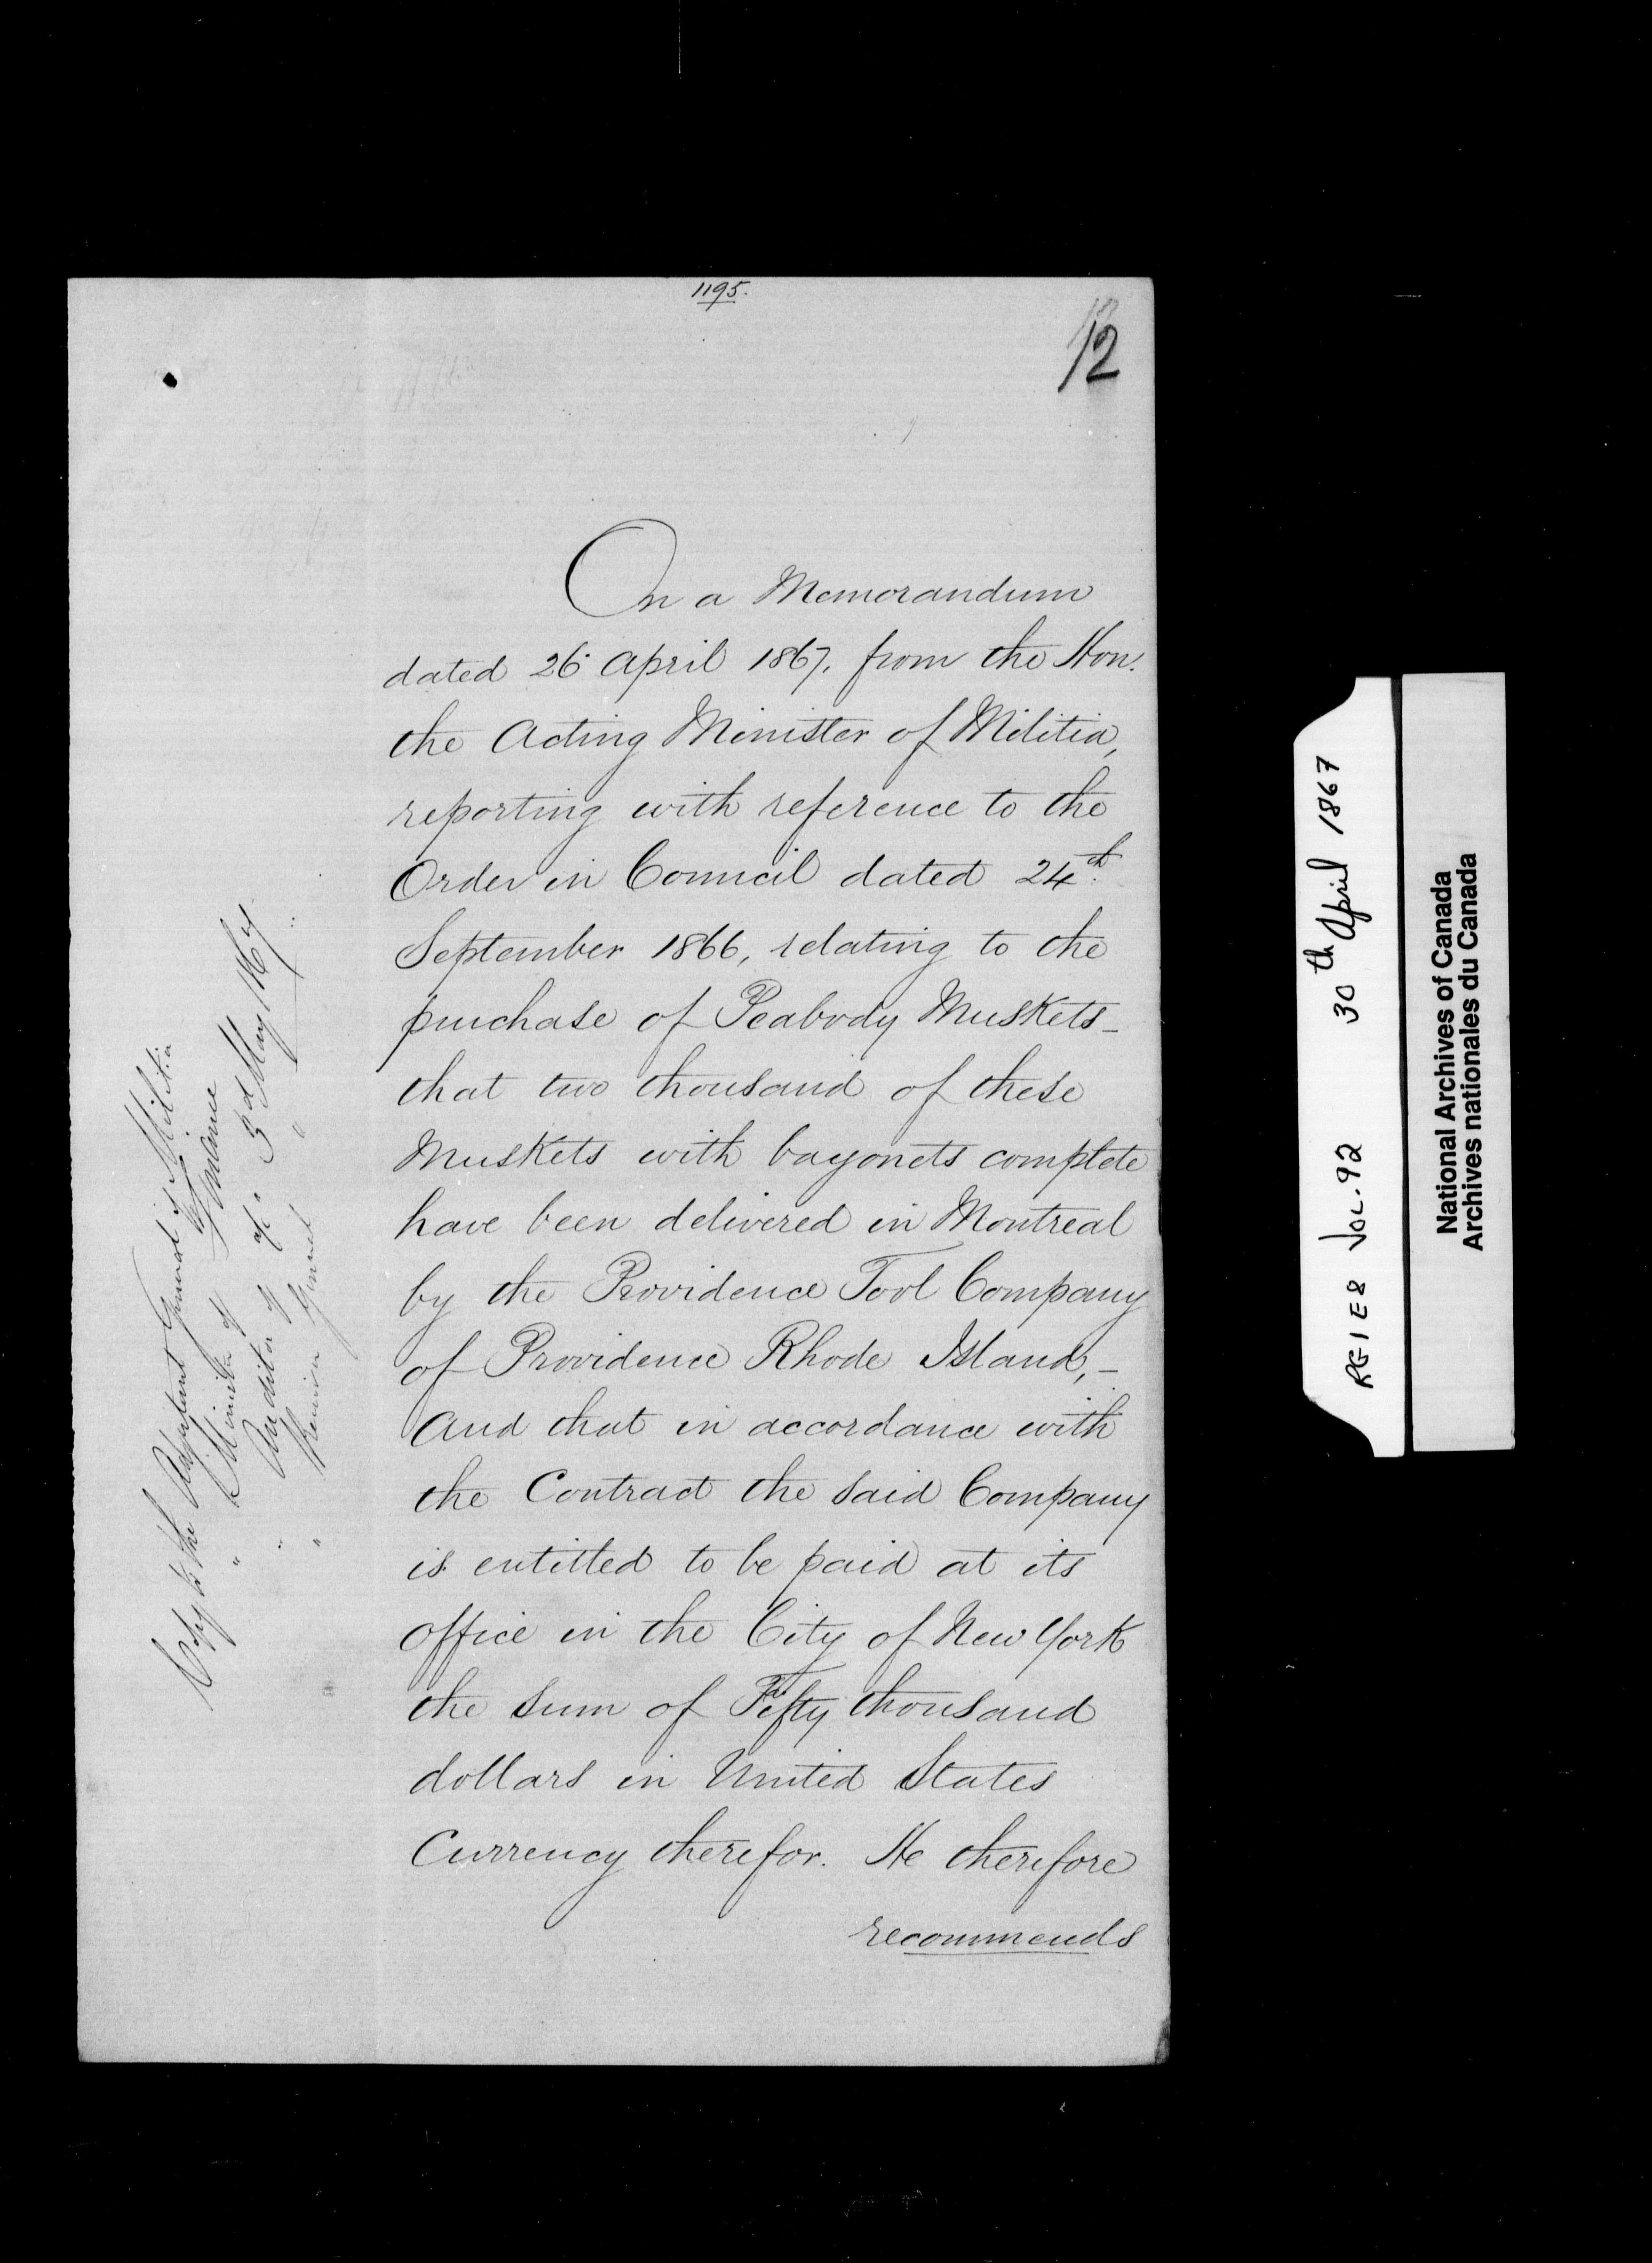 1195.
12
On a Memorandum
dated 26 April 1867, from the Hon.
the Acting Minister of Militia,
reporting with reference to the
Order in Council dated 24th.
September 1866, relating to the
purchase of Peabody Muskets-
that two thousand of these
Muskets with bayonets complete
have been delivered in Montreal
by the Providence Tool Company
of Providence Rhode Island,-
And that in accordance with
the Contract the said Company
is entitled to be paid at its
office in the City of New York
the sum of Fifty thousand
dollars in United States
Currency therefor. He therefore
recommends
Copy to the Adjutant General of Militia
" Minister of Finance
" Auditor of do 3d May 1867
" Receiver General "
RG 1 E8 VOL. 92 30th April 1867
National Archives of Canada
Archives nationales du Canada